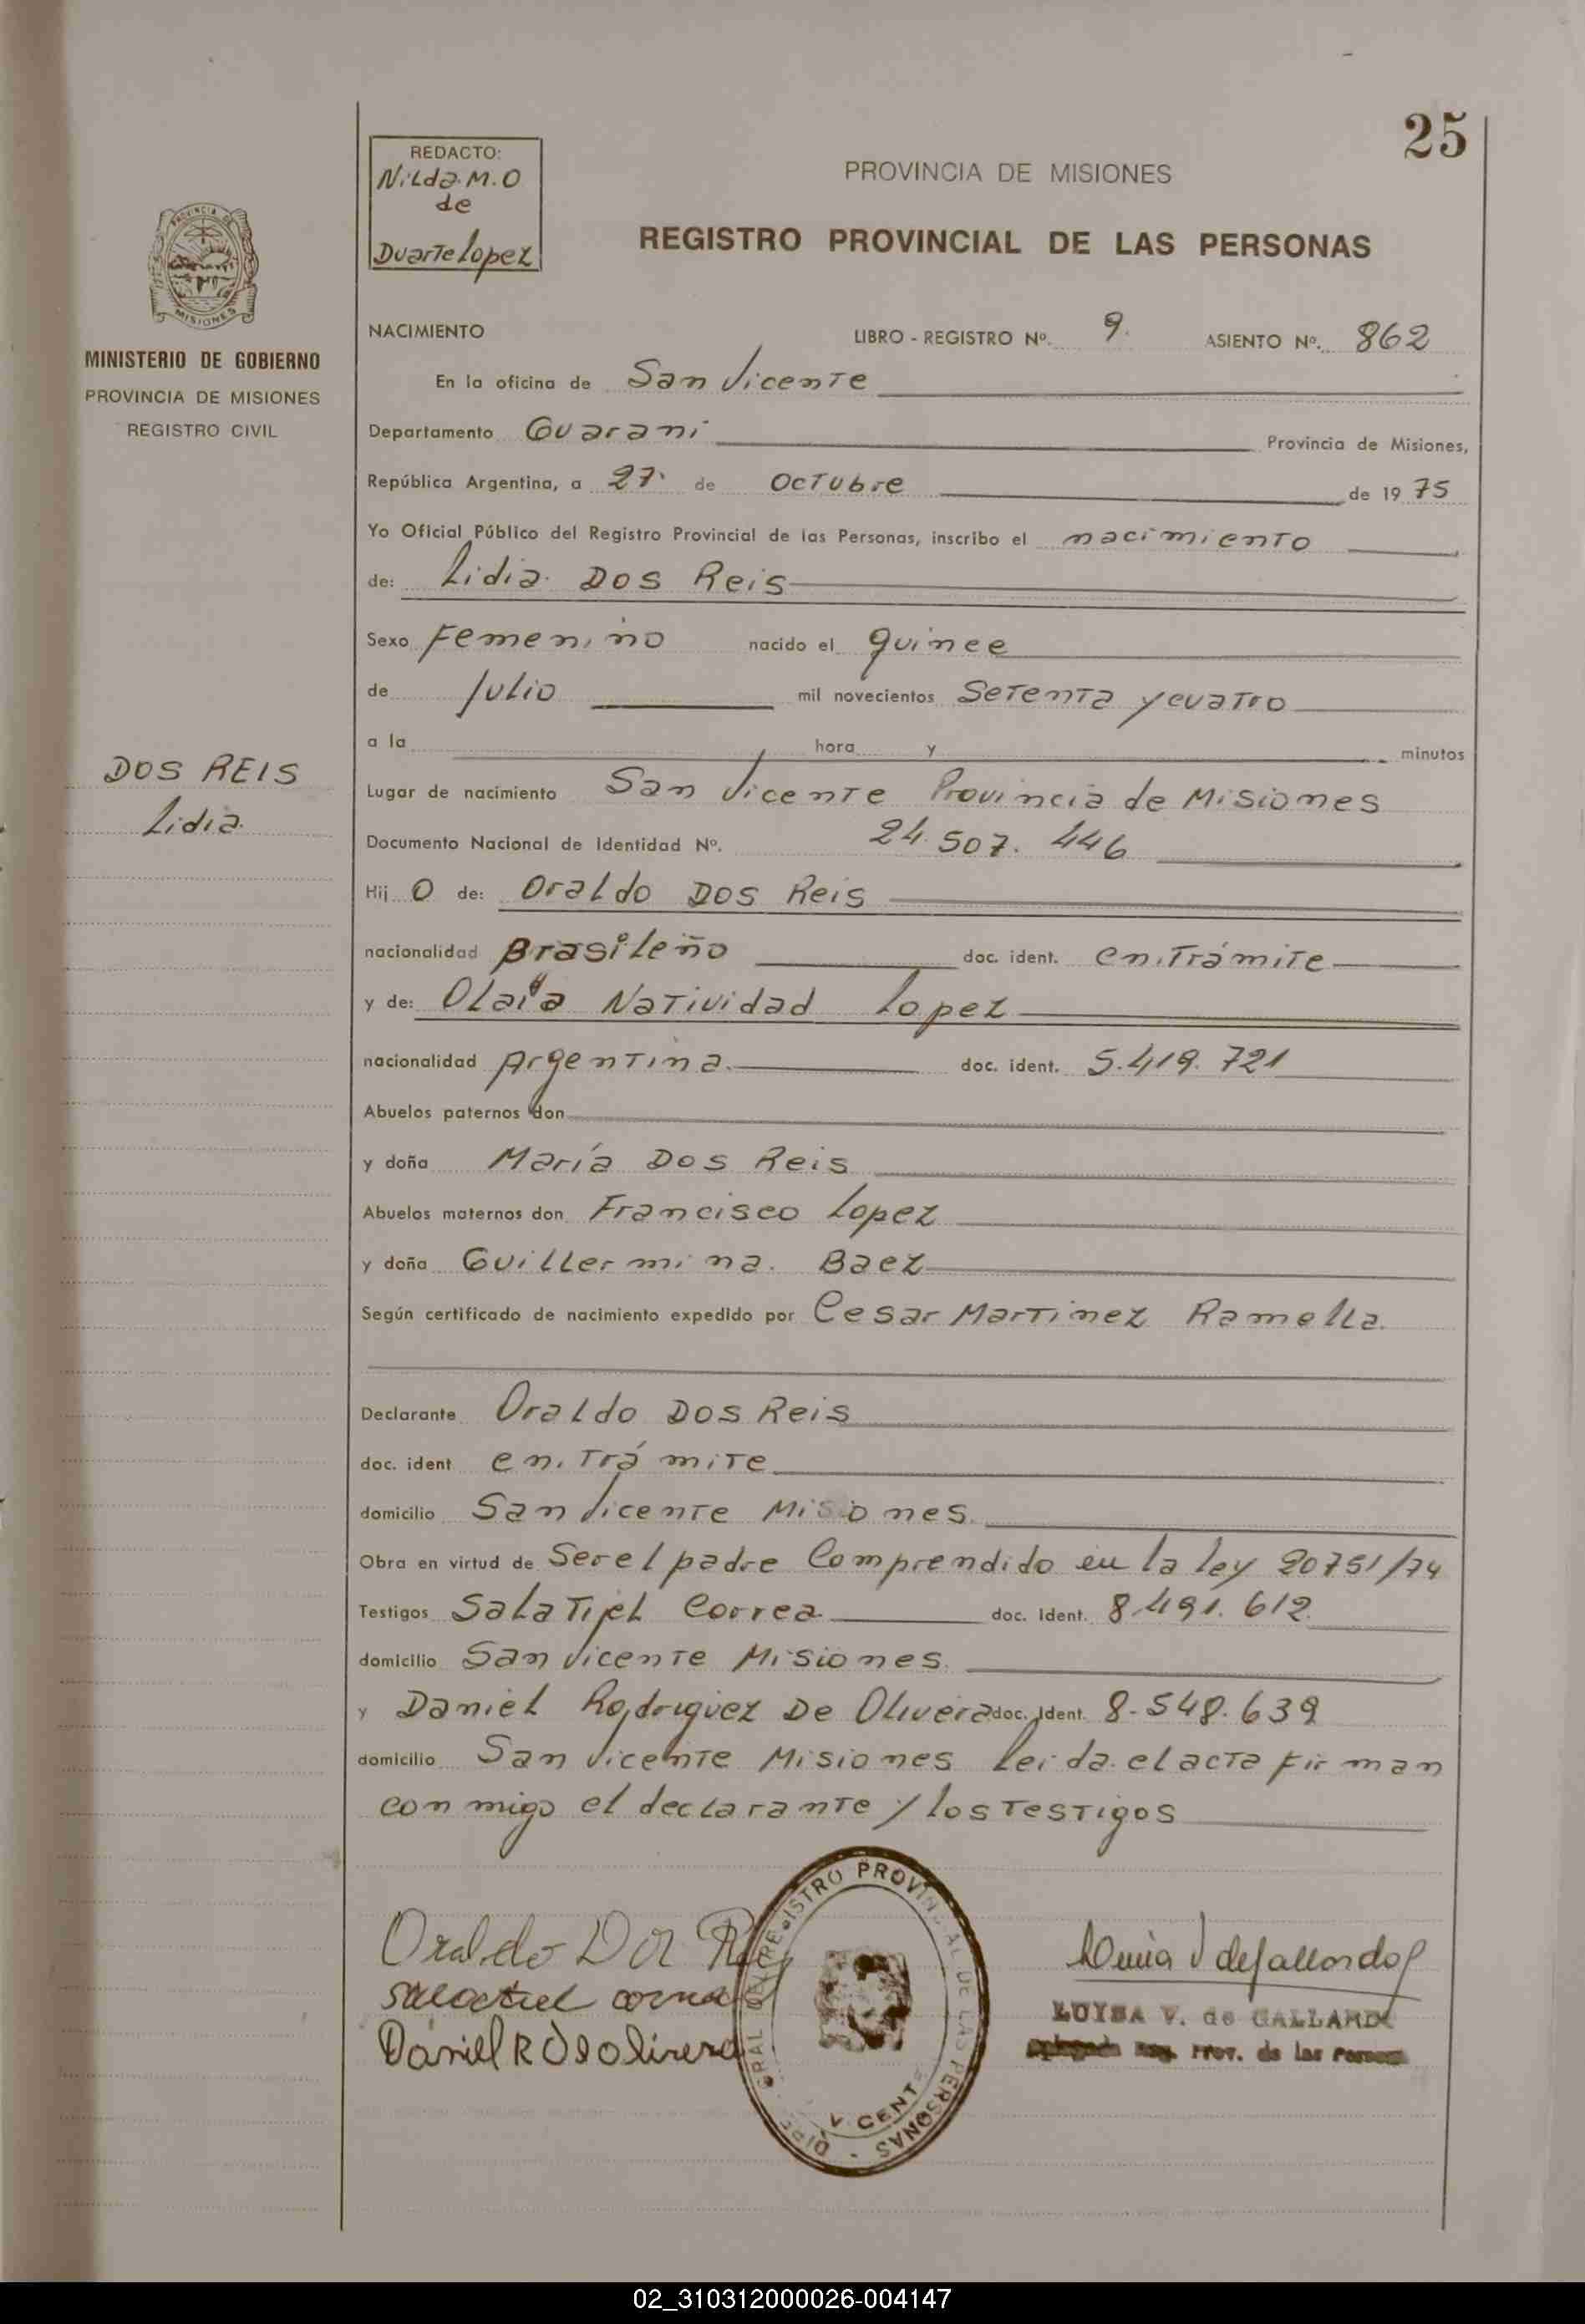 25
REDACTO:
Nilda. M. O
de
Duarte Lopez
PROVINCIA DE MISIONES
REGISTRO PROVINCIAL DE LAS PERSONAS
PROVINCIA DE
MISIONES
MINISTERIO DE GOBIERNO
PROVINCIA DE MISIONES
REGISTRO CIVIL
NACIMIENTO LIBRO - REGISTRO Nº. 9. ASIENTO Nº. 862
En la oficina de San Vicente
Departamento Guarani Provincia de Misiones,
República Argentina, a 27 de Octubre de 1975
Yo Oficial Público del Registro Provincial de las Personas, inscribo el nacimiento
de: Lidia Dos Reis
Sexo Femenino nacido el quince
de Julio mil novecientos Setenta y cuatro
a la hora y minutos
DOS REIS
Lidia
Lugar de nacimiento San Vicente Provincia de Misiones
Documento Nacional de Identidad Nº. 24.507.446
Hij O de: Oraldo Dos Reis
nacionalidad Brasileño doc. ident. en Trámite
y de: Olaia Natividad Lopez
nacionalidad Argentina doc. ident. 5.419.721
Abuelos paternos don
y doña María Dos Reis
Abuelos maternos don Francisco Lopez
y doña Guillermina. Baez
Según certificado de nacimiento expedido por Cesar Martinez Ramella.
Declarante Oraldo Dos Reis
doc. ident en Trámite
domicilio San Vicente Misiones
Obra en virtud de Ser el padre Comprendido en la ley 20751/74
Testigos Salatiel Correa doc. Ident. 8.491.612
domicilio San Vicente Misiones
y Daniel Rodriguez De Olivera doc. Ident. 8.548.639
domicilio San Vicente Misiones leida el acta firman
conmigo el declarante y los testigos
Oraldo Dos Reis
Salatiel correa
Daniel R D Olivera
DIRE GRAL DEL REGISTRO PROVINCIAL DE LAS PERSONAS
V CENTE
LUISA V. de GALLARDO
Delegada Reg. Prov. de las Personas
02_310312000026-004147